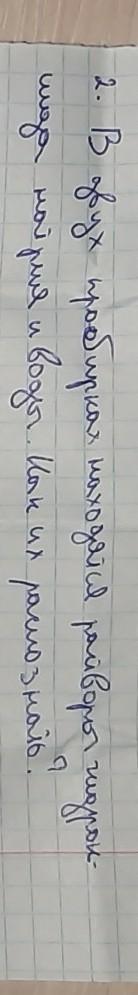 2. В двух пробирках находятся растворы гидрок-
сида натрия и воды. Как их распознать?